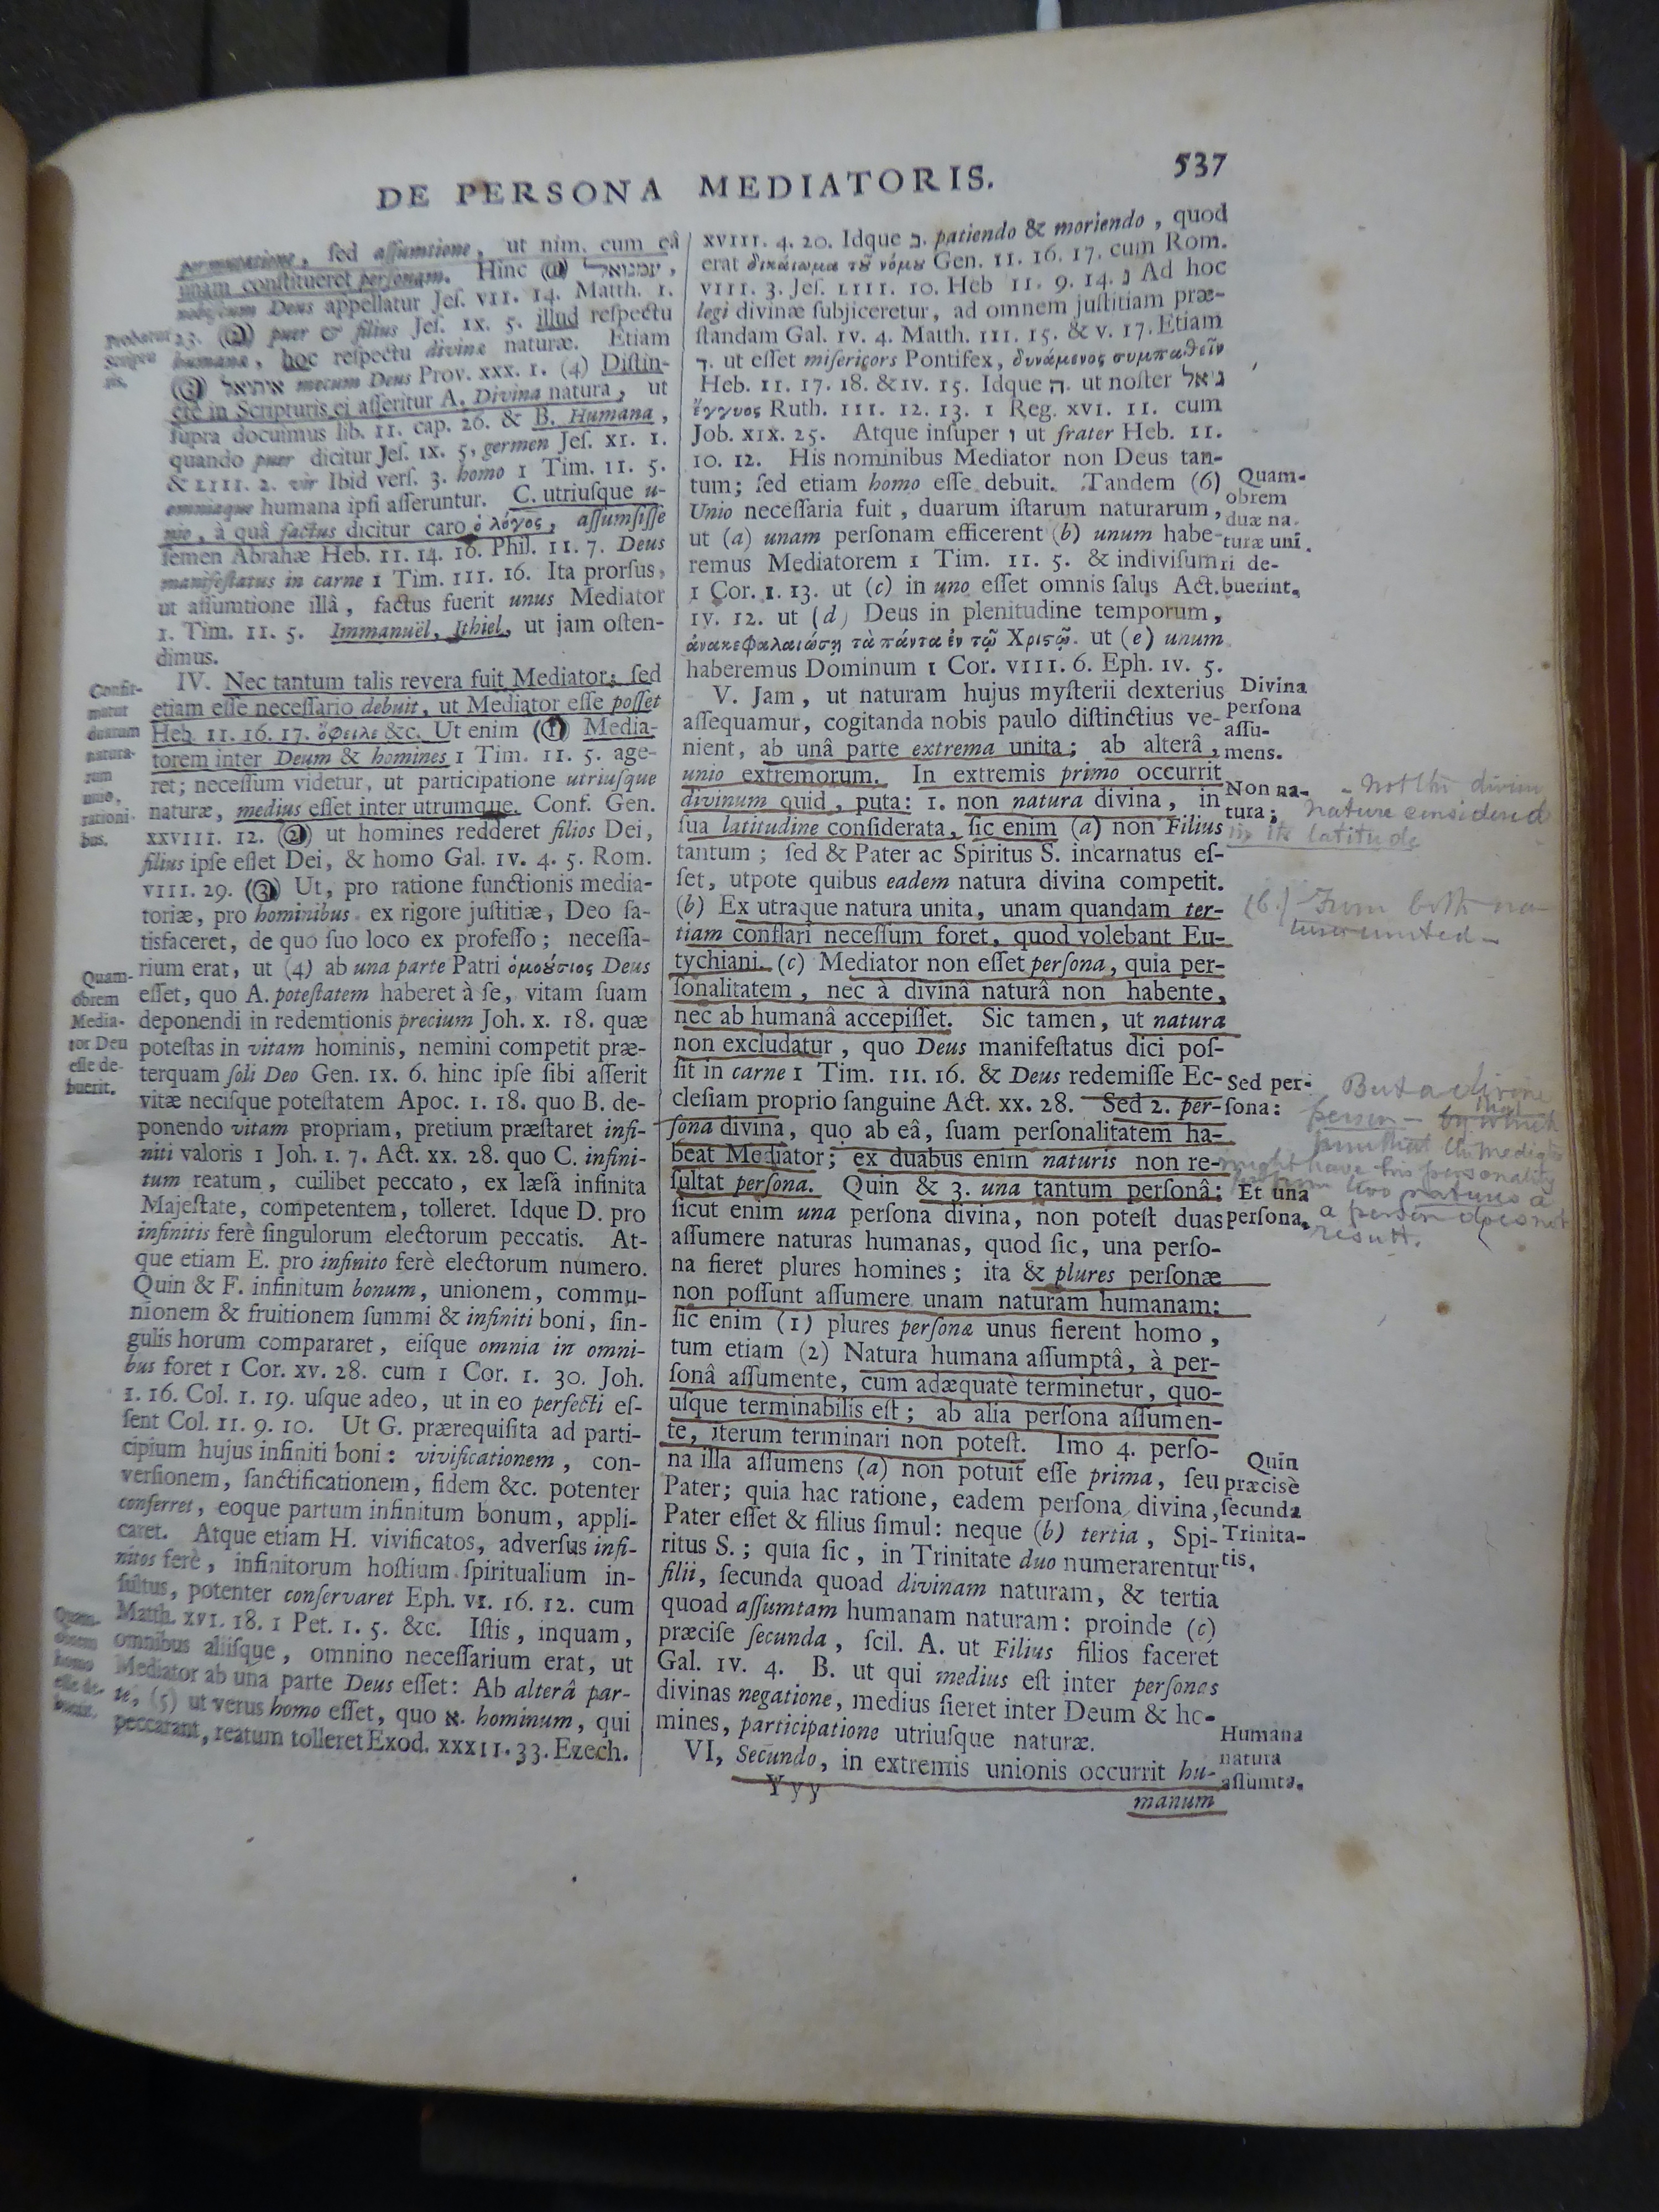 DE PERSONA MEDIATORIS.
537
permutatione, ſed aſſumtione, ut nim. cum eâ
unam conſtitueret perſonam. Hinc (1) עמנואל,
nobiſcum Deus appellatur Jeſ. VII. 14. Matth. 1.
23. (2) puer & filius Jeſ. IX. 5. illud reſpectu
humanæ, hoc reſpectu divinæ naturæ. Etiam
(3) איתיאל mecum Deus Prov. XXX. 1. (4) Diſtin-
cte in Scripturis ei aſſeritur A. Divina natura, ut
ſupra docuimus lib. II. cap. 26. & B. Humana,
quando puer dicitur Jeſ. IX. 5, germen Jeſ. XI. 1.
& LIII. 2. vir Ibid verſ. 3. homo 1 Tim. II. 5.
omniaque humana ipſi aſſeruntur. C. utriuſque u-
nio, à quâ factus dicitur caro ὁ λόγος, aſſumſiſſe
ſemen Abrahæ Heb. II. 14. 16. Phil. II. 7. Deus
manifeſtatus in carne 1 Tim. III. 16. Ita prorſus,
ut aſſumtione illâ, factus fuerit unus Mediator
1. Tim. II. 5. Immanuël, Ithiel, ut jam oſten-
dimus.
IV. Nec tantum talis revera fuit Mediator; ſed
etiam eſſe neceſſario debuit, ut Mediator eſſe poſſet
Heb. II. 16. 17. ὄφειλε &c. Ut enim (1) Media-
torem inter Deum & homines 1 Tim. II. 5. age-
ret; neceſſum videtur, ut participatione utriuſque
naturæ, medius eſſet inter utrumque. Conf. Gen.
XXVIII. 12. (2) ut homines redderet filios Dei,
filius ipſe eſſet Dei, & homo Gal. IV. 4. 5. Rom.
VIII. 29. (3) Ut, pro ratione functionis media-
toriæ, pro hominibus ex rigore juſtitiæ, Deo ſa-
tisfaceret, de quo ſuo loco ex profeſſo; neceſſa-
rium erat, ut (4) ab una parte Patri ὁμούσιος Deus
eſſet, quo A. poteſtatem haberet à ſe, vitam ſuam
deponendi in redemtionis precium Joh. X. 18. quæ
poteſtas in vitam hominis, nemini competit præ-
terquam ſoli Deo Gen. IX. 6. hinc ipſe ſibi aſſerit
vitæ neciſque poteſtatem Apoc. 1. 18. quo B. de-
ponendo vitam propriam, pretium præſtaret infi-
niti valoris 1 Joh. 1. 7. Act. XX. 28. quo C. infini-
tum reatum, cuilibet peccato, ex læſâ infinita
Majeſtate, competentem, tolleret. Idque D. pro
infinitis ferè ſingulorum electorum peccatis. At-
que etiam E. pro infinito ferè electorum numero.
Quin & F. infinitum bonum, unionem, commu-
nionem & fruitionem ſummi & infiniti boni, ſin-
gulis horum compararet, eiſque omnia in omni-
bus foret 1 Cor. XV. 28. cum 1 Cor. 1. 30. Joh.
1. 16. Col. 1. 19. uſque adeo, ut in eo perfecti eſ-
ſent Col. II. 9. 10. Ut G. prærequiſita ad parti-
cipium hujus infiniti boni: vivificationem, con-
verſionem, ſanctificationem, fidem &c. potenter
conferret, eoque partum infinitum bonum, appli-
caret. Atque etiam H. vivificatos, adverſus infi-
nitos ferè, infinitorum hoſtium ſpiritualium in-
ſultus, potenter conſervaret Eph. VI. 16. 12. cum
Matth. XVI. 18. 1 Pet. 1. 5. &c. Iſtis, inquam,
omnibus aliiſque, omnino neceſſarium erat, ut
Mediator ab una parte Deus eſſet: Ab alterâ par-
te, (5) ut verus homo eſſet, quo א. hominum, qui
peccarant, reatum tolleret Exod. XXXII. 33. Ezech.
Probatur
Scriptu
ris.
Confir-
matur
duarum
natura-
rum
unio,
rationi-
bus.
Quam-
obrem
Media-
tor Deu
eſſe de-
buerit.
Quam-
obrem
homo
eſſe de-
buerit.
XVIII. 4. 20. Idque ב. patiendo & moriendo, quod
erat δικαίωμα τȣ͂ νόμȣ Gen. II. 16. 17. cum Rom.
VIII. 3. Jeſ. LIII. 10. Heb II. 9. 14. ג Ad hoc
legi divinæ ſubjiceretur, ad omnem juſtitiam præ-
ſtandam Gal. IV. 4. Matth. III. 15. & V. 17. Etiam
ד. ut eſſet miſericors Pontifex, δυνάμενος συμπαθεῖν
Heb. II. 17. 18. & IV. 15. Idque ה. ut noſter גואל
ἔγγυος Ruth. III. 12. 13. 1 Reg. XVI. 11. cum
Job. XIX. 25. Atque inſuper ו ut frater Heb. II.
10. 12. His nominibus Mediator non Deus tan-
tum; ſed etiam homo eſſe debuit. Tandem (6)
Unio neceſſaria fuit, duarum iſtarum naturarum,
ut (a) unam perſonam efficerent (b) unum habe-
remus Mediatorem 1 Tim. II. 5. & indiviſum
1 Cor. 1. 13. ut (c) in uno eſſet omnis ſalus Act.
IV. 12. ut (d) Deus in plenitudine temporum,
ἀνακεφαλαιώση τὰ πάντα ἐν τῷ Χριςῷ. ut (e) unum
haberemus Dominum 1 Cor. VIII. 6. Eph. IV. 5.
V. Jam, ut naturam hujus myſterii dexterius
aſſequamur, cogitanda nobis paulo diſtinctius ve-
nient, ab unâ parte extrema unita; ab alterâ,
unio extremorum. In extremis primo occurrit
divinum quid, puta: 1. non natura divina, in
ſua latitudine conſiderata, ſic enim (a) non Filius
tantum; ſed & Pater ac Spiritus S. incarnatus eſ-
ſet, utpote quibus eadem natura divina competit.
(b) Ex utraque natura unita, unam quandam ter-
tiam conflari neceſſum foret, quod volebant Eu-
tychiani. (c) Mediator non eſſet perſona, quia per-
ſonalitatem, nec à divinâ naturâ non habente,
nec ab humanâ accepiſſet. Sic tamen, ut natura
non excludatur, quo Deus manifeſtatus dici poſ-
ſit in carne 1 Tim. III. 16. & Deus redemiſſe Ec-
cleſiam proprio ſanguine Act. XX. 28. Sed 2. per-
ſona divina, quo ab eâ, ſuam perſonalitatem ha-
beat Mediator; ex duabus enim naturis non re-
ſultat perſona. Quin & 3. una tantum perſonâ:
ſicut enim una perſona divina, non poteſt duas
aſſumere naturas humanas, quod ſic, una perſo-
na fieret plures homines; ita & plures perſonæ
non poſſunt aſſumere unam naturam humanam:
ſic enim (1) plures perſonæ unus fierent homo,
tum etiam (2) Natura humana aſſumptâ, à per-
ſonâ aſſumente, cum adæquatè terminetur, quo-
uſque terminabilis eſt; ab alia perſona aſſumen-
te, iterum terminari non poteſt. Imo 4. perſo-
na illa aſſumens (a) non potuit eſſe prima, ſeu
Pater; quia hac ratione, eadem perſona divina,
Pater eſſet & filius ſimul: neque (b) tertia, Spi-
ritus S.; quia ſic, in Trinitate duo numerarentur
filii, ſecunda quoad divinam naturam, & tertia
quoad aſſumtam humanam naturam: proinde (c)
præciſe ſecunda, ſcil. A. ut Filius filios faceret
Gal. IV. 4. B. ut qui medius eſt inter perſonas
divinas negatione, medius fieret inter Deum & ho-
mines, participatione utriuſque naturæ.
VI, Secundo, in extremis unionis occurrit hu-
Yyy
manum
Quam-
obrem
duæ na-
turæ uni
ri de-
buerint.
Divina
perſona
aſſu-
mens.
Non na-
tura;
Sed per-
ſona:
Et una
perſona,
Quin
præciſè
ſecunda
Trinita-
tis.
Humana
natura
aſſumta.
- not the divine
nature considered
in its latitude
(b.) From both na-
tures united -
But a divine
person - by which
the Mediator
might have his personality
two natures a
a person does not
result.